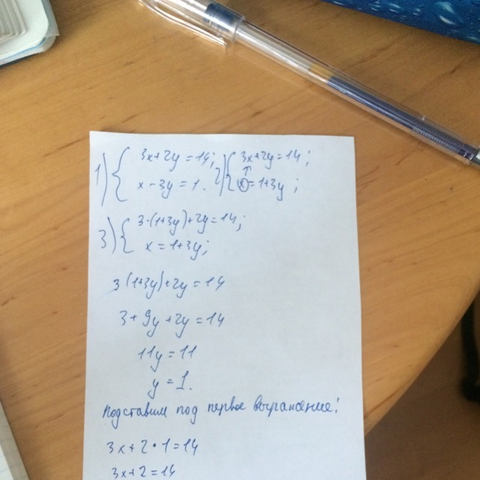 1) { 3x+2y=14; 2) { 3x+2y=14;
x-3y=1. x=1+3y;
3) { 3·(1+3y)+2y=14;
x=1+3y;
3(1+3y)+2y=14
3+9y+2y=14
11y=11
y=1.
Подставим под первое выражение:
3x+2·1=14
3x+2=14